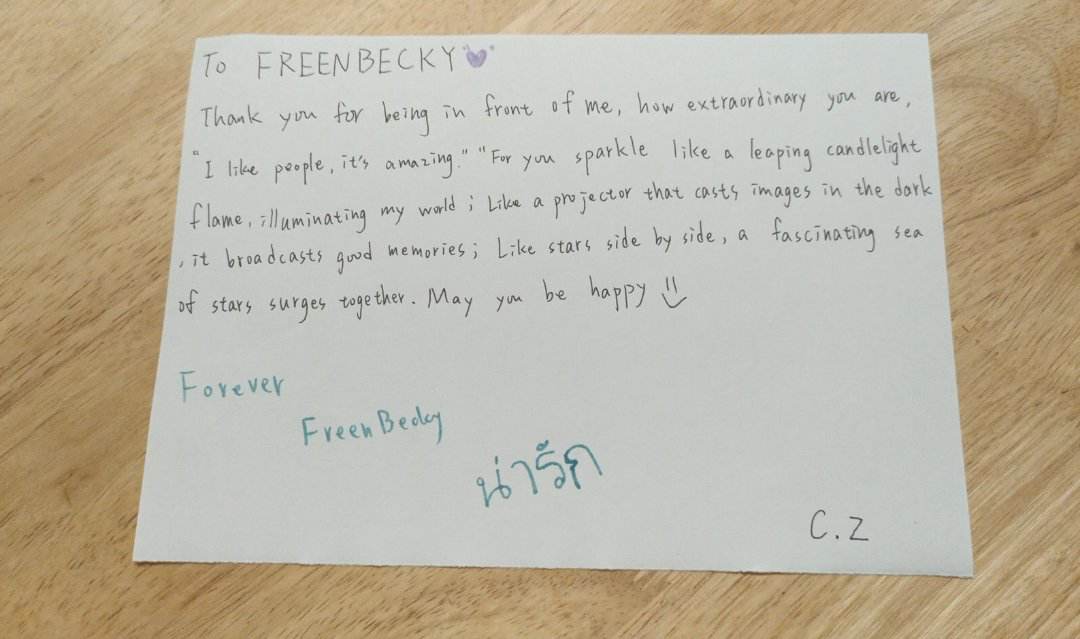 To FREENBECKY💜
Thank you for being in front of me, how extraordinary you are,
"I like people, it's amazing." "For you sparkle like a leaping candlelight
flame, illuminating my world; Like a projector that casts images in the dark
, it broadcasts good memories; Like stars side by side, a fascinating sea
of stars surges together. May you be happy
Forever
FreenBecky
น่ารัก
C.Z